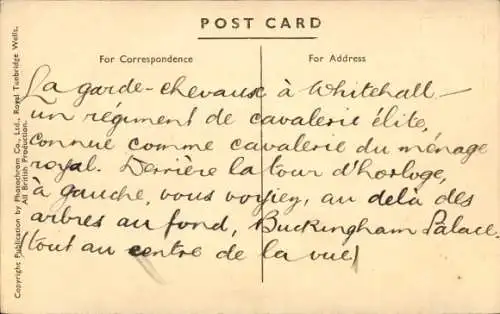 POST CARD
For Correspondence
For Address
La garde-chevaux à Whitehall —
un régiment de cavalerie élite,
connue comme cavalerie du ménage
royal. Derrière la tour d'horloge,
à gauche, vous voyiey, au delà des
arbres au fond, Buckingham Palace.
(tout au centre de la vue)
Copyright Publication by Photochrom Co., Ltd., Royal Tunbridge Wells.
All British Production.